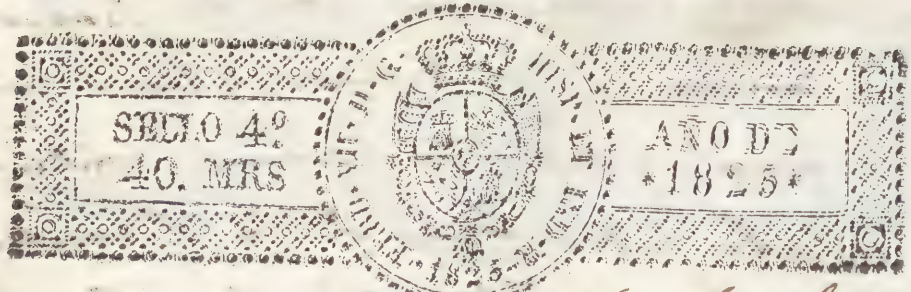 SELLO 4º
40. MRS
FERD. VII. D. G. HISP. ET IND. R.
1825
AÑO DE
*1825*